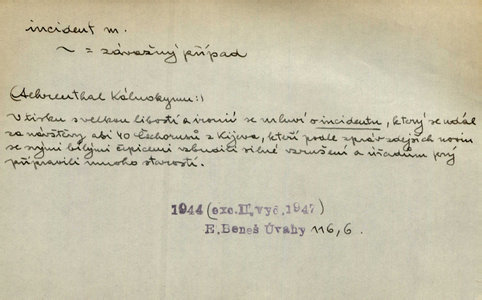 incident m.
~ = závažný případ
(Aehrenthal Kálnokymu:)
V tisku s velkou libostí a ironií se mluví o incidentu, který se udál
za návštěvy asi 40 Čechorusů z Kijeva, kteří podle zpráv zdejších novin
se svými bílými čepicemi vzbudili silné vzrušení a úřadům prý
připravili mnoho starostí.
1944 (exc.II.vyč.1947)
E.Beneš Úvahy 116,6.